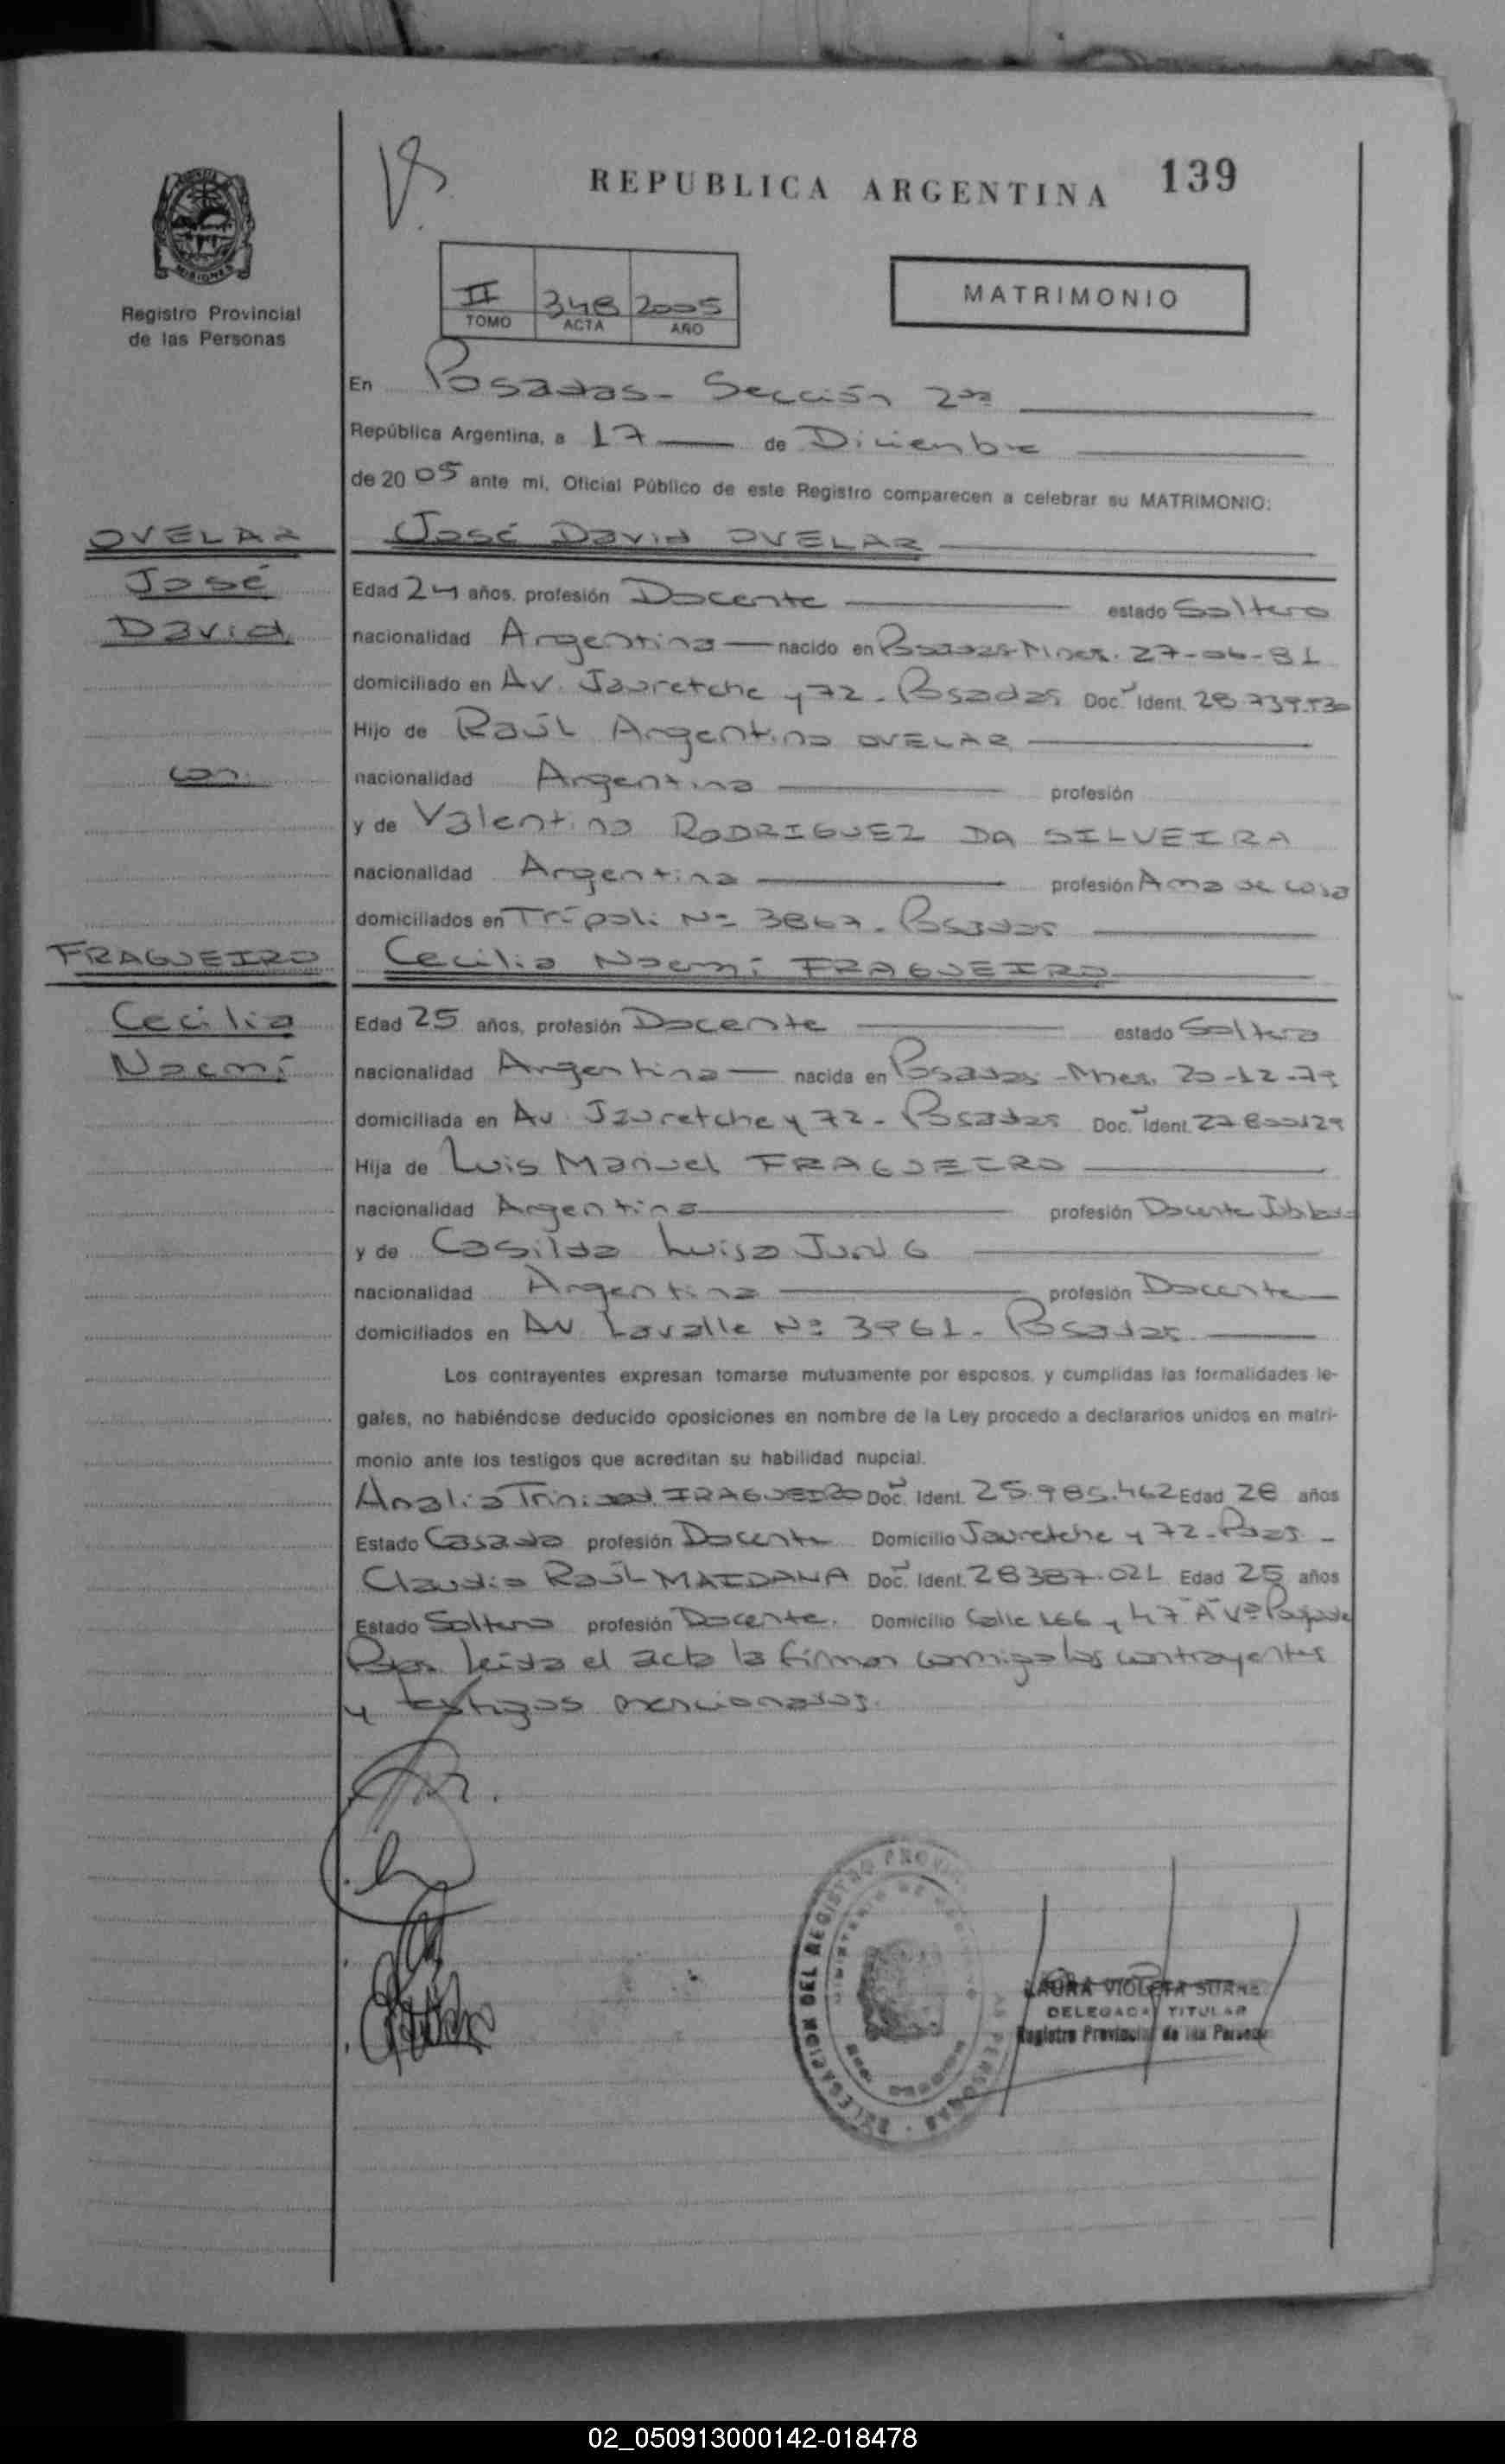 REPUBLICA ARGENTINA 139
MISIONES
Registro Provincial
de las Personas
II 348 2005
TOMO ACTA AÑO
MATRIMONIO
En Posadas - Sección 2da
República Argentina, a 17 de Diciembre
de 2005 ante mi, Oficial Público de este Registro comparecen a celebrar su MATRIMONIO:
OVELAR
José
David
con
FRAGUEIRO
Cecilia
Noemí
José David OVELAR
Edad 24 años, profesión Docente estado Soltero
nacionalidad Argentina nacido en Posadas-Mnes. 27-06-81
domiciliado en Av. Jauretche y 72 - Posadas Doc. Ident. 28.739.530
Hijo de Raúl Argentino OVELAR
nacionalidad Argentina profesión
y de Valentina RODRIGUEZ DA SILVEIRA
nacionalidad Argentina profesión Ama de casa
domiciliados en Trípoli Nº 3867 - Posadas
Cecilia Noemí FRAGUEIRO
Edad 25 años, profesión Docente estado Soltera
nacionalidad Argentina nacida en Posadas - Mnes. 20-12-79
domiciliada en Av Jauretche y 72 - Posadas Doc. Ident. 27.800129
Hija de Luis Manuel FRAGUEIRO
nacionalidad Argentina profesión Docente
y de Casilda Luisa JUNG
nacionalidad Argentina profesión Docente
domiciliados en Av Lavalle Nº 3961 - Posadas
Los contrayentes expresan tomarse mutuamente por esposos, y cumplidas las formalidades le-
gales, no habiéndose deducido oposiciones en nombre de la Ley procedo a declararlos unidos en matri-
monio ante los testigos que acreditan su habilidad nupcial.
Analia Trinidad FRAGUEIRO Doc. Ident. 25.985.462 Edad 28 años
Estado Casada profesión Docente Domicilio Jauretche y 72 - Pdas -
Claudio Raúl MAIDANA Doc. Ident. 28387.021 Edad 25 años
Estado Soltero profesión Docente. Domicilio Calle 166 y 47 "A" Vº
leida el acta la firman conmigo los contrayentes
y testigos mencionados.
DELEGACION DEL REGISTRO PROV PERSONAS
LAURA VIOLETA
DELEGADA TITULAR
Registro Provincial de las Personas
02_050913000142-018478